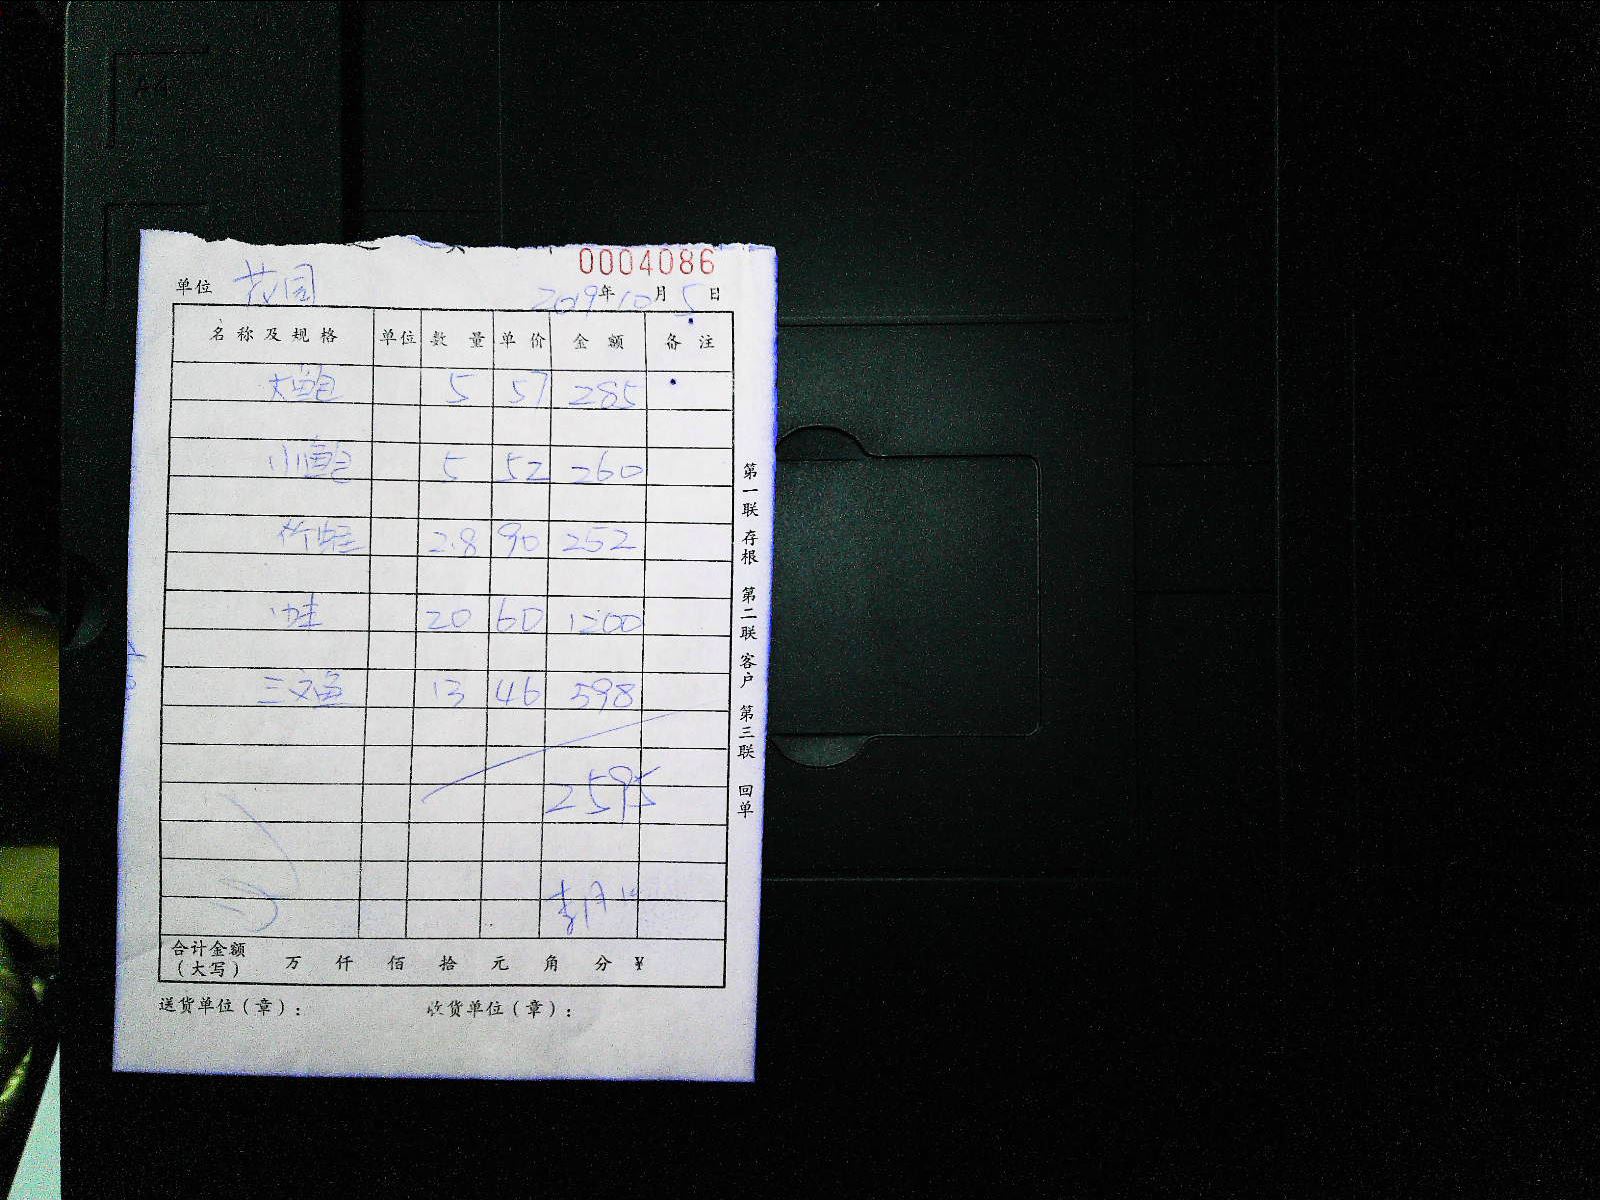 0004086
单位 花园 2019年10月5日
名称及规格 单位 数量 单价 金额 备注
大鲍 5 57 285
小鲍 5 52 260
竹蛏 2.8 90 252
20 60 1200
三文鱼 13 46 598
2595
合计金额（大写） 万 仟 佰 拾 元 角 分 ¥
送货单位（章）： 收货单位（章）：
第一联 存根 第二联 客户 第三联 回单